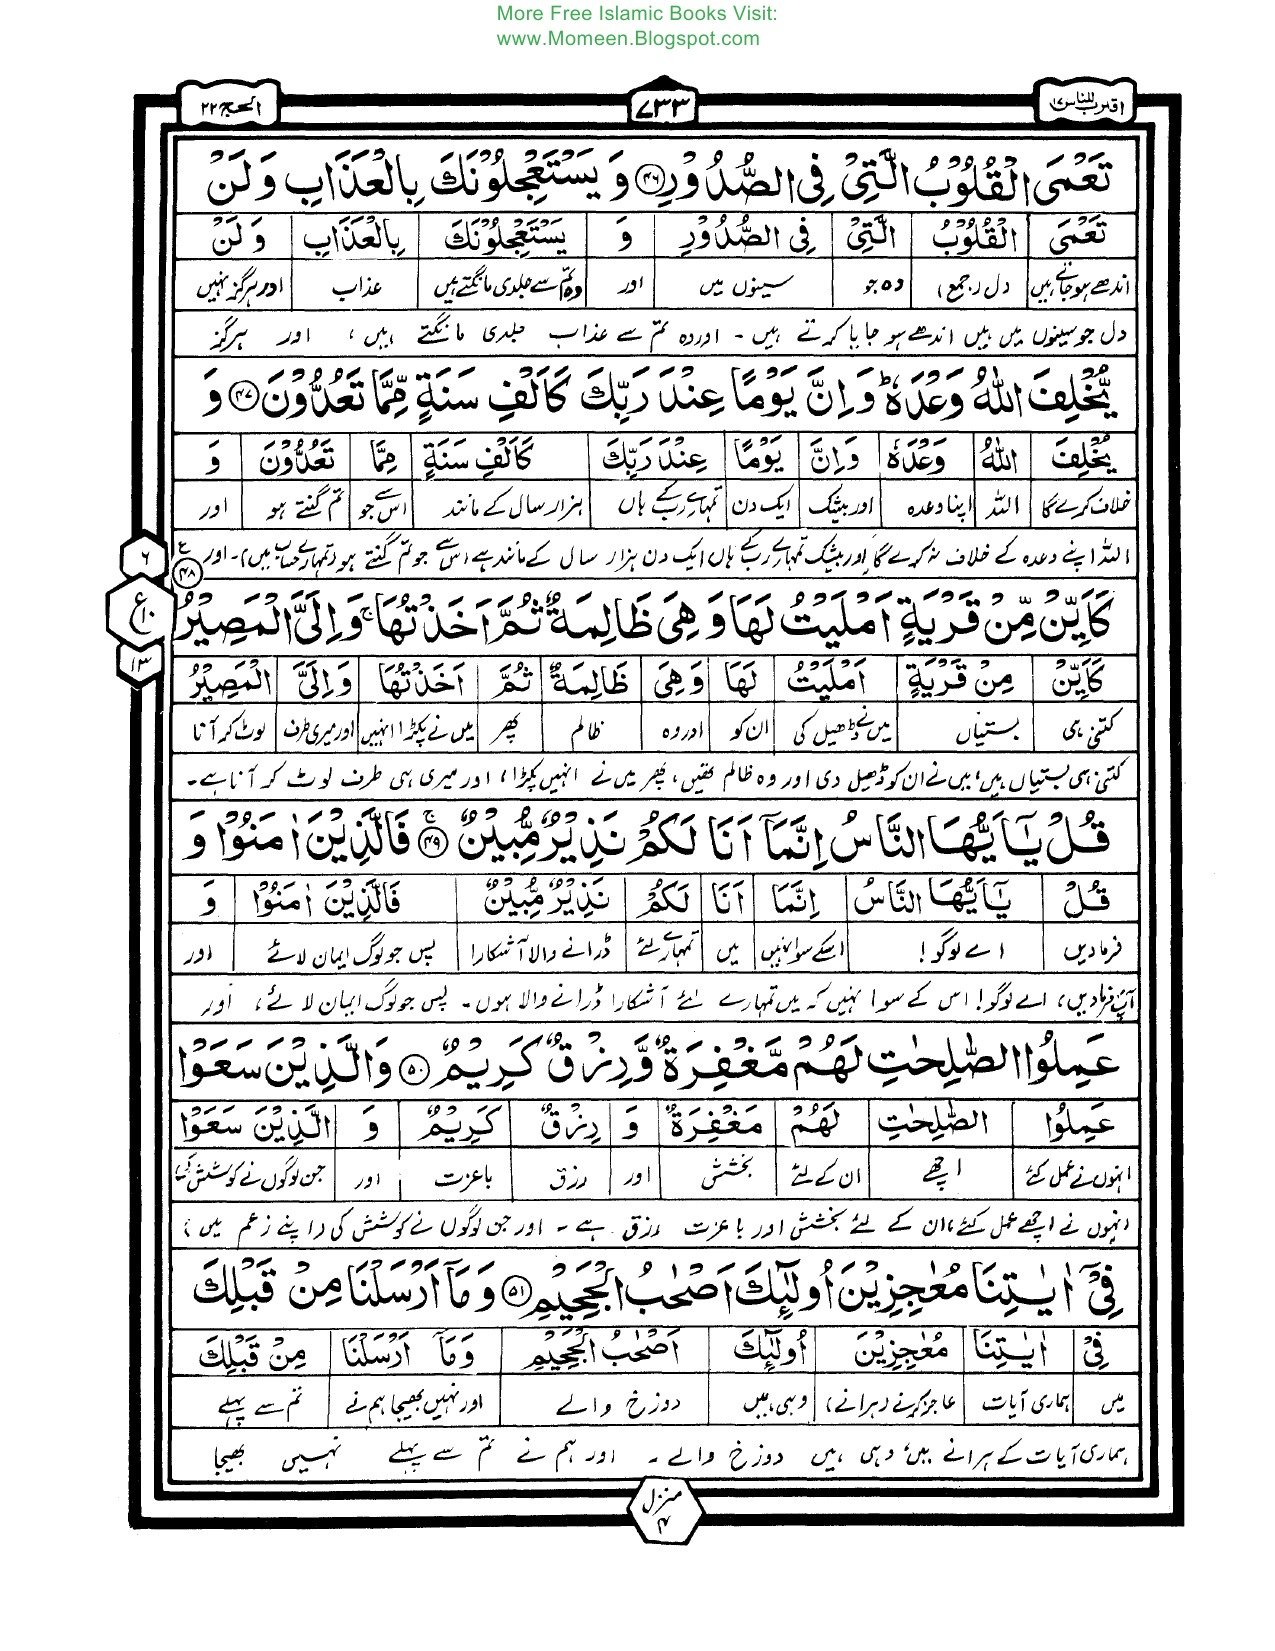 More Free Islamic Books Visit:
www.Momeen.Blogspot.com
اقترب للناس ١٧
٧٣٣
الحج ٢٢
تَعْمَى الْقُلُوْبُ الَّتِیْ فِی الصُّدُوْرِ ﴿۴۶﴾ وَ یَسْتَعْجِلُوْنَكَ بِالْعَذَابِ وَ لَنْ
تَعْمَى الْقُلُوْبُ الَّتِیْ فِی الصُّدُوْرِ وَ یَسْتَعْجِلُوْنَكَ بِالْعَذَابِ وَ لَنْ
اندھے ہو جاتے ہیں دل (جمع) وہ جو سینوں میں اور وہ تم سے جلدی مانگتے ہیں عذاب اور ہرگز نہیں
دل جو سینوں میں ہیں اندھے ہو جایا کرتے ہیں۔ اور وہ تم سے عذاب جلدی مانگتے ہیں، اور ہرگز
یُّخْلِفَ اللّٰهُ وَعْدَهٗ ؕ وَ اِنَّ یَوْمًا عِنْدَ رَبِّكَ كَاَلْفِ سَنَةٍ مِّمَّا تَعُدُّوْنَ ﴿۴۷﴾ وَ
یُخْلِفَ اللّٰهُ وَعْدَهٗ وَاِنَّ یَوْمًا عِنْدَ رَبِّكَ كَاَلْفِ سَنَةٍ مِمَّا تَعُدُّوْنَ وَ
خلاف کرے گا اللہ اپنا وعدہ اور بیشک ایک دن تمہارے رب کے ہاں ہزار سال کے مانند اس سے جو تم گنتے ہو اور
اللہ اپنے وعدہ کے خلاف نہ کرے گا اور بیشک تمہارے رب کے ہاں ایک دن ہزار سال کے مانند ہے اس سے جو تم گنتے ہو (تمہارے حساب میں)۔ اور
۶
ع ١٠
١٣
كَاَیِّنْ مِّنْ قَرْیَةٍ اَمْلَیْتُ لَهَا وَ هِیَ ظَالِمَةٌ ثُمَّ اَخَذْتُهَا ۚ وَ اِلَیَّ الْمَصِیْرُ ﴿۴۸﴾ ع
كَاَیِّنْ مِنْ قَرْیَةٍ اَمْلَیْتُ لَهَا وَ هِیَ ظَالِمَةٌ ثُمَّ اَخَذْتُهَا وَ اِلَیَّ الْمَصِیْرُ
کتنی ہی بستیاں میں نے ڈھیل دی ان کو اور وہ ظالم پھر میں نے پکڑا انہیں اور میری طرف لوٹ کر آنا
کتنی ہی بستیاں ہیں، میں نے ان کو ڈھیل دی اور وہ ظالم تھیں، پھر میں نے انہیں پکڑا، اور میری ہی طرف لوٹ کر آنا ہے۔
قُلْ یٰۤاَیُّهَا النَّاسُ اِنَّمَاۤ اَنَا لَكُمْ نَذِیْرٌ مُّبِیْنٌ ۚ﴿۴۹﴾ فَالَّذِیْنَ اٰمَنُوْا وَ
قُلْ یٰۤاَیُّهَا النَّاسُ اِنَّمَا اَنَا لَكُمْ نَذِیْرٌ مُّبِیْنٌ فَالَّذِیْنَ اٰمَنُوْا وَ
فرما دیں اے لوگو! اسکے سوا نہیں میں تمہارے لئے ڈرانے والا آشکارا پس جو لوگ ایمان لائے اور
آپؐ فرما دیں، اے لوگو! اس کے سوا نہیں کہ میں تمہارے لئے آشکارا ڈرانے والا ہوں۔ پس جو لوگ ایمان لائے، اور
عَمِلُوا الصّٰلِحٰتِ لَهُمْ مَّغْفِرَةٌ وَّ رِزْقٌ كَرِیْمٌ ﴿۵۰﴾ وَ الَّذِیْنَ سَعَوْا
عَمِلُوا الصّٰلِحٰتِ لَهُمْ مَغْفِرَةٌ وَ رِزْقٌ كَرِیْمٌ وَ الَّذِیْنَ سَعَوْا
انہوں نے عمل کئے اچھے ان کے لئے بخشش اور رزق باعزت اور جن لوگوں نے کوشش کی
انہوں نے اچھے عمل کئے، ان کے لئے بخشش اور با عزت رزق ہے۔ اور جن لوگوں نے کوشش کی (اپنے زعم میں)
فِیْۤ اٰیٰتِنَا مُعٰجِزِیْنَ اُولٰٓئِكَ اَصْحٰبُ الْجَحِیْمِ ﴿۵۱﴾ وَ مَاۤ اَرْسَلْنَا مِنْ قَبْلِكَ
فِیْ اٰیٰتِنَا مُعٰجِزِیْنَ اُولٰٓئِكَ اَصْحٰبُ الْجَحِیْمِ وَ مَاۤ اَرْسَلْنَا مِنْ قَبْلِكَ
میں ہماری آیات عاجز کرنے (ہرانے) وہی ہیں دوزخ والے اور نہیں بھیجا ہم نے تم سے پہلے
ہماری آیات کے ہرانے میں، وہی ہیں دوزخ والے۔ اور ہم نے تم سے پہلے نہیں بھیجا
منزل ۴